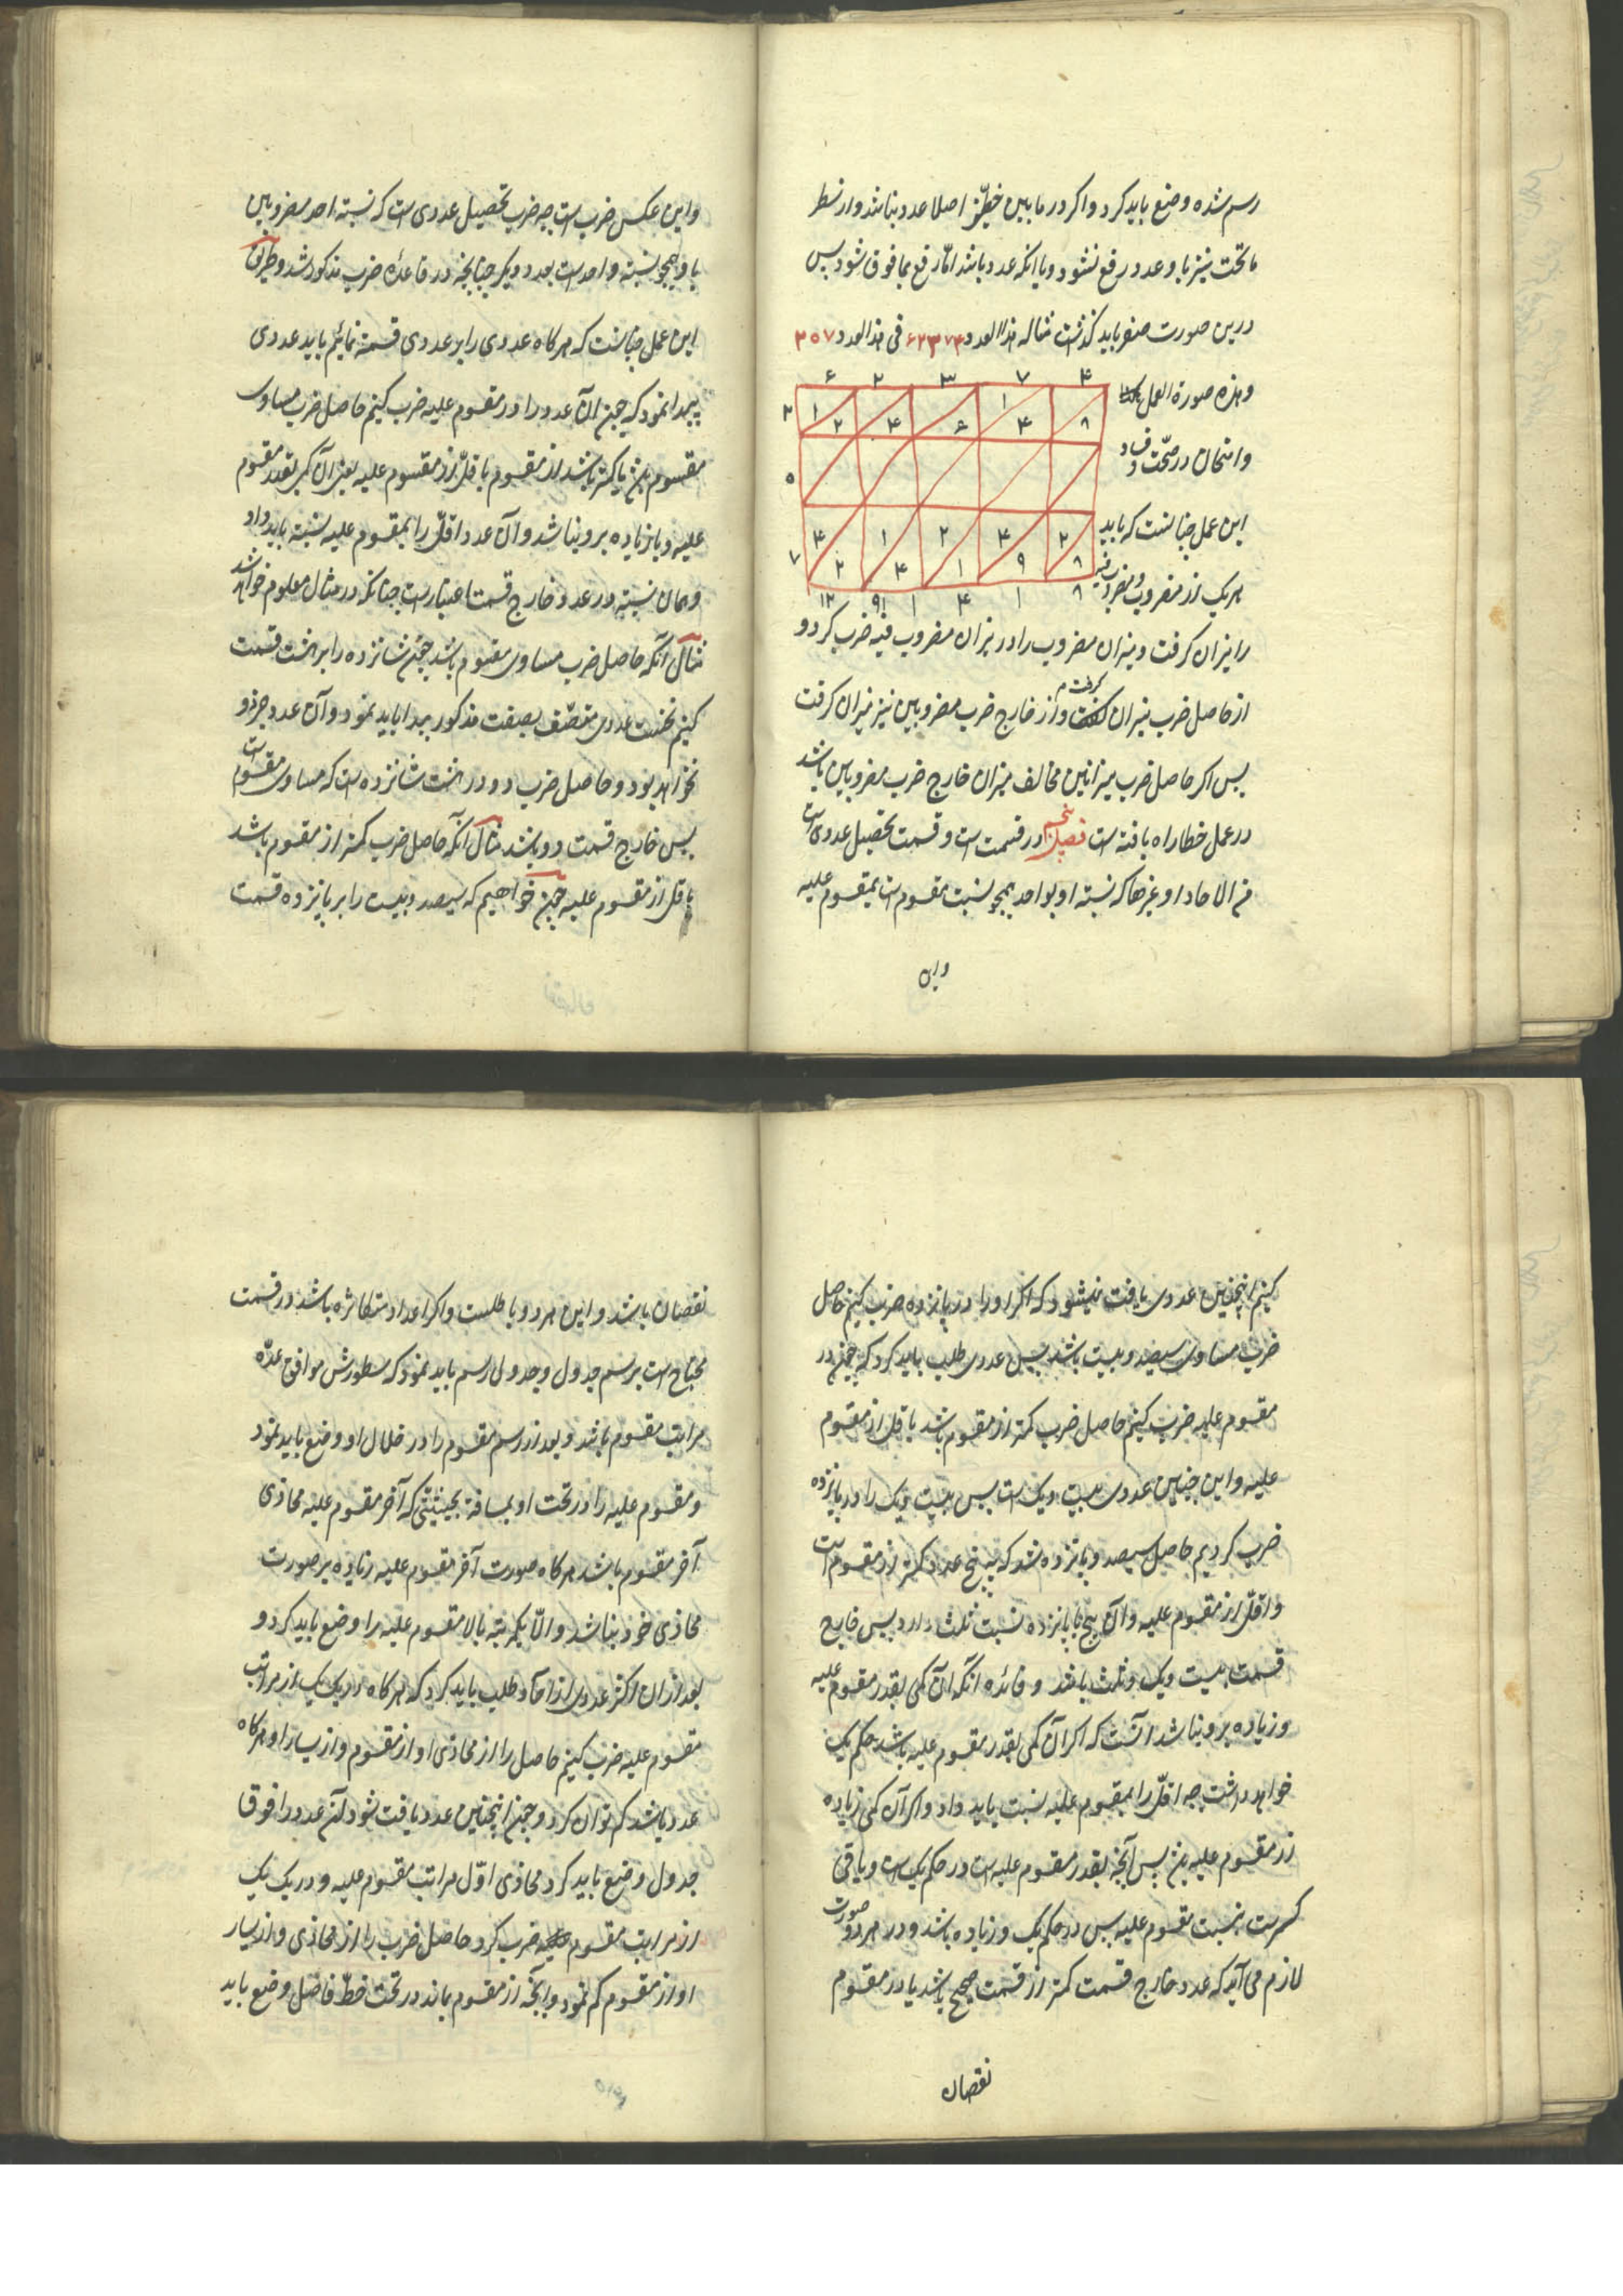 رسم شده وضع باید کرد و اکر در ما بین خطین اصلا عدد نباشد و از سطر
ما تحت نیز باو عدد رفع نشود و یا انکه عدد باشد امّا رفع بما فوق شود پس
درین صورت صفر باید کذاشت مثاله هذا العدد ۶۲۳۷۴ فی هذا العدد ۲۰۷
وهذه صورة العمل
۶ ۲ ۳ ۷ ۴
۲ ۱ ۲ ۴ ۶ ۱ ۴ ۸
وامتحان در صحّت و فساد
۵
این عمل چنانست که باید
۷ ۴ ۲ ۱ ۴ ۲ ۱ ۴ ۹ ۲ ۸
هر یک از مضروب و مضروب فیه
۱۲ ۹۱ ۱ ۴ ۱ ۸
را میزان کرفت و میزان مضروب را در میزان مضروب فیه ضرب کرد و
از حاصل ضرب میزان کرفت و از خارج ضرب مضروبین نیز میزان کرفت
پس اکر حاصل ضرب میزانین مخالف میزان خارج ضرب مضروبین باشد
در عمل خطا راه یافته است فصل پنجم در قسمت است و قسمت تحصیل عددی است
من الاحاد او غیرها که نسبته او بواحد همچو نسبت مقسوم است بمقسوم علیه
و این
و این عکس ضرب است چه ضرب تحصیل عددی است که نسبته احد مضروبین
باو همچو نسبته واحد است بعدد دیکر چنانچه در قاعدهٔ ضرب مذکور شد و طریق
این عمل چنانست که هر کاه عددی را بر عددی قسمة نمائیم باید عددی
پیدا نمود که چون آن عدد را در مقسوم علیه ضرب کنیم حاصل ضرب مساوی
مقسوم باشد یا کمتر باشد از مقسوم باقلّ از مقسوم علیه یعنی آن کمی بقدر مقسوم
علیه و یا زیاده برو نباشد و آن عدد اقلّ را بمقسوم علیه نسبته باید داد
و همان نسبته در عدد خارج قسمت اعتبار است چنانکه در مثال معلوم خواهد شد
مثال آنکه حاصل ضرب مساوی مقسوم باشد چون شانزده را بر هشت قسمت
کنیم نخست عددی متصّف بصفت مذکور پیدا باید نمود و آن عدد جز دو
نخواهد بود و حاصل ضرب دو در هشت شانزده است که مساوی مقسوم است
پس خارج قسمت دو باشد مثال آنکه حاصل ضرب کمتر از مقسوم باشد
باقل از مقسوم علیه چون خواهیم که سیصد و بیست را بر پانزده قسمت
کنیم اینچنین عددی یافت نمیشود که اکر او را در پانزده ضرب کنیم حاصل
ضرب مساوی سیصد و بیست باشد پس عددی طلب باید کرد که چون در
مقسوم علیه ضرب کنیم حاصل ضرب کمتر از مقسوم باشد باقل از مقسوم
علیه و این چنین عددی بیست و یک است پس بیست و یک را در پانزده
ضرب کردیم حاصل سیصد و پانزده شد که به پنج عدد کمتر از مقسوم است
و اقلّ از مقسوم علیه و آن پنج با پانزده نسبت ثلث دارد پس خارج
قسمت بیست و یک و ثلث باشد و فائده آنکه آن کمی بقدر مقسوم علیه
و زیاده برو نباشد آنست که اکر آن کمی بقدر مقسوم علیه باشد حکم یک
خواهد داشت چه اقلّ را بمقسوم علیه نسبت باید داد و اکر آن کمی زیاده
از مقسوم علیه باشد پس آنچه بقدر مقسوم علیه است در حکم یک است و باقی
کسرست بنسبت مقسوم علیه پس در حکم یک و زیاده باشد و در هر دو صورت
لازم می آید که عدد خارج قسمت کمتر از قسمت صحیح باشد یا در مقسوم
نقصان
نقصان باشد و این هر دو باطلست و اکر اعداد متکاثره باشد در قسمت
محتاج است برسم جدول و جدول رسم باید نمود که سطورش موافق عدّه
مراتب مقسوم باشد و بعد از رسم مقسوم را در خلال او وضع باید نمود
و مقسوم علیه را در تحت او بمسافة بحیثیتی که آخر مقسوم علیه محاذی
آخر مقسوم باشد هر کاه صورت آخر مقسوم علیه زیاده بر صورت
محاذی خود نباشد و الّا یکمرتبه بالا مقسوم علیه را وضع باید کرد و
بعد از ان اکثر عددی از آحاد طلب باید کرد که هر کاه در یک یک از مراتب
مقسوم علیه ضرب کنیم حاصل را از محاذی او از مقسوم و از یسار او هر کاه
عدد باشد کم توان کرد و چون اینچنین عدد یافت شود آن عدد را فوق
جدول وضع باید کرد محاذی اوّل مراتب مقسوم علیه و در یک یک
از مراتب مقسوم علیه ضرب کرد حاصل ضرب را از محاذی و از یسار
او از مقسوم کم نمود و آنچه از مقسوم بماند در تحت خطّ فاصل وضع باید